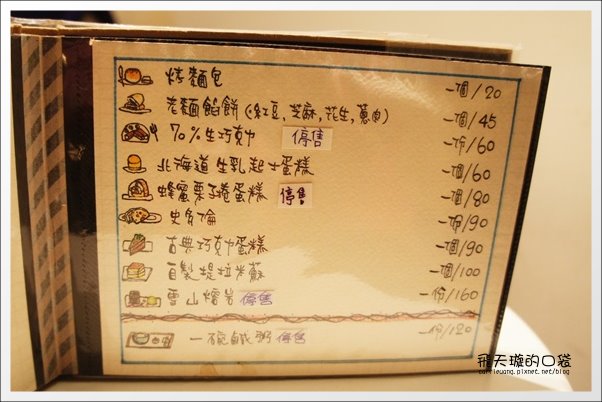 烤麵包 一個/20
老麵餡餅(紅豆,芝麻,花生,蔥肉) 一個/45
70%生巧克力 停售 一份/60
北海道生乳起士蛋糕 一個/60
蜂蜜栗子捲蛋糕 停售 一個/80
史多倫 一份/90
古典巧克力蛋糕 一個/90
自製提拉米蘇 一個/100
雪山熔岩 停售 一份/160
一碗鹹粥 停售 一份/120
飛天璇的口袋